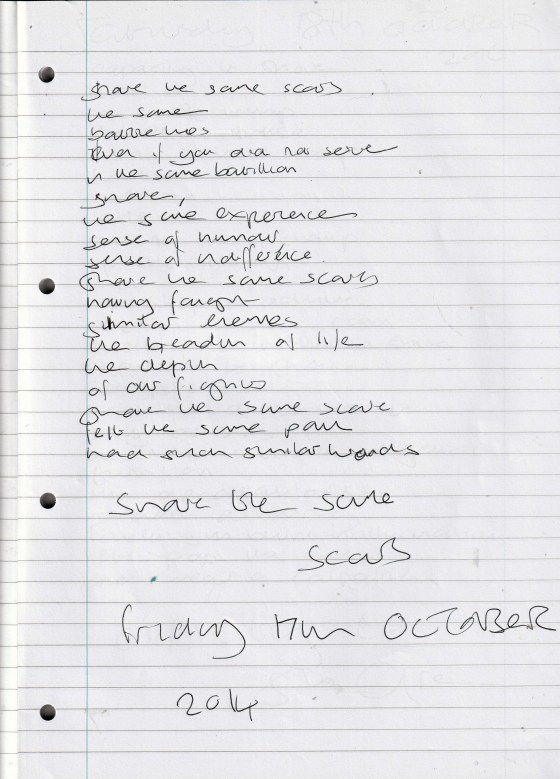 share the same scars
the same
battle lines
even if you did not serve
in the same battallion
share,
the same experiences
sense of humour,
sense of indifference
share the same scars
having fought
similar enemies
the breadth of life
the depth
of our fights
share the same scars
felt the same pain
had such similar wounds
share the same
scars
Friday 17th OCTOBER
2014